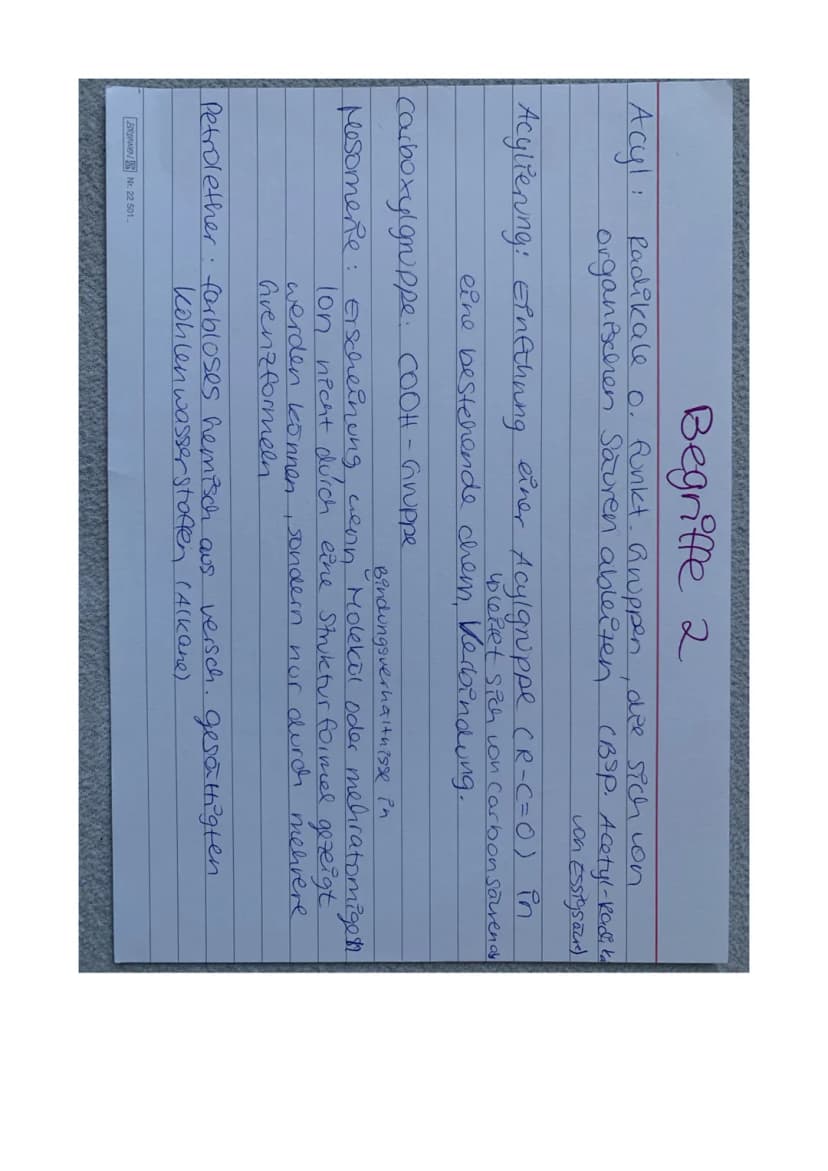 Begriffe 2
Acyl: Radikale o. funkt. Gruppen, die sich von
organischen Säuren ableiten (Bsp. Acetyl-Radika
von Essigsäure)
Acylierung: Einführung einer Acylgruppe (R-C=O) in
leitet sich von Carbonsäuren ab
eine bestehende chem. Verbindung.
Carboxylgruppe: COOH-Gruppe
Bindungsverhältnisse in
Mesomerie: Erscheinung wenn Molekül oder mehratomigen
Ion nicht durch eine Strukturformel gezeigt
werden können, sondern nur durch mehrere
Grenzformeln
Petrolether: farbloses Gemisch aus versch. gesättigten
Kohlenwasserstoffen (Alkane)
Nr. 22 501